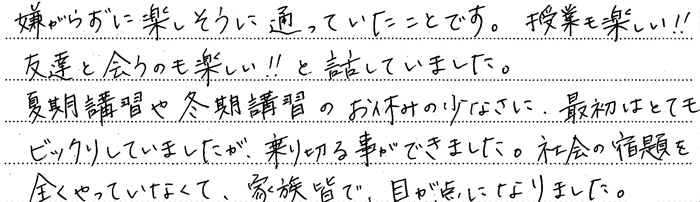 嫌がらずに楽しそうに通っていたことです。授業も楽しい!!
友達と会うのも楽しい!!と話していました。
夏期講習や冬期講習のお休みの少なさに、最初はとても
ビックリしていましたが、乗り切る事ができました。社会の宿題を
全くやっていなくて、家族皆で、目が点になりました。